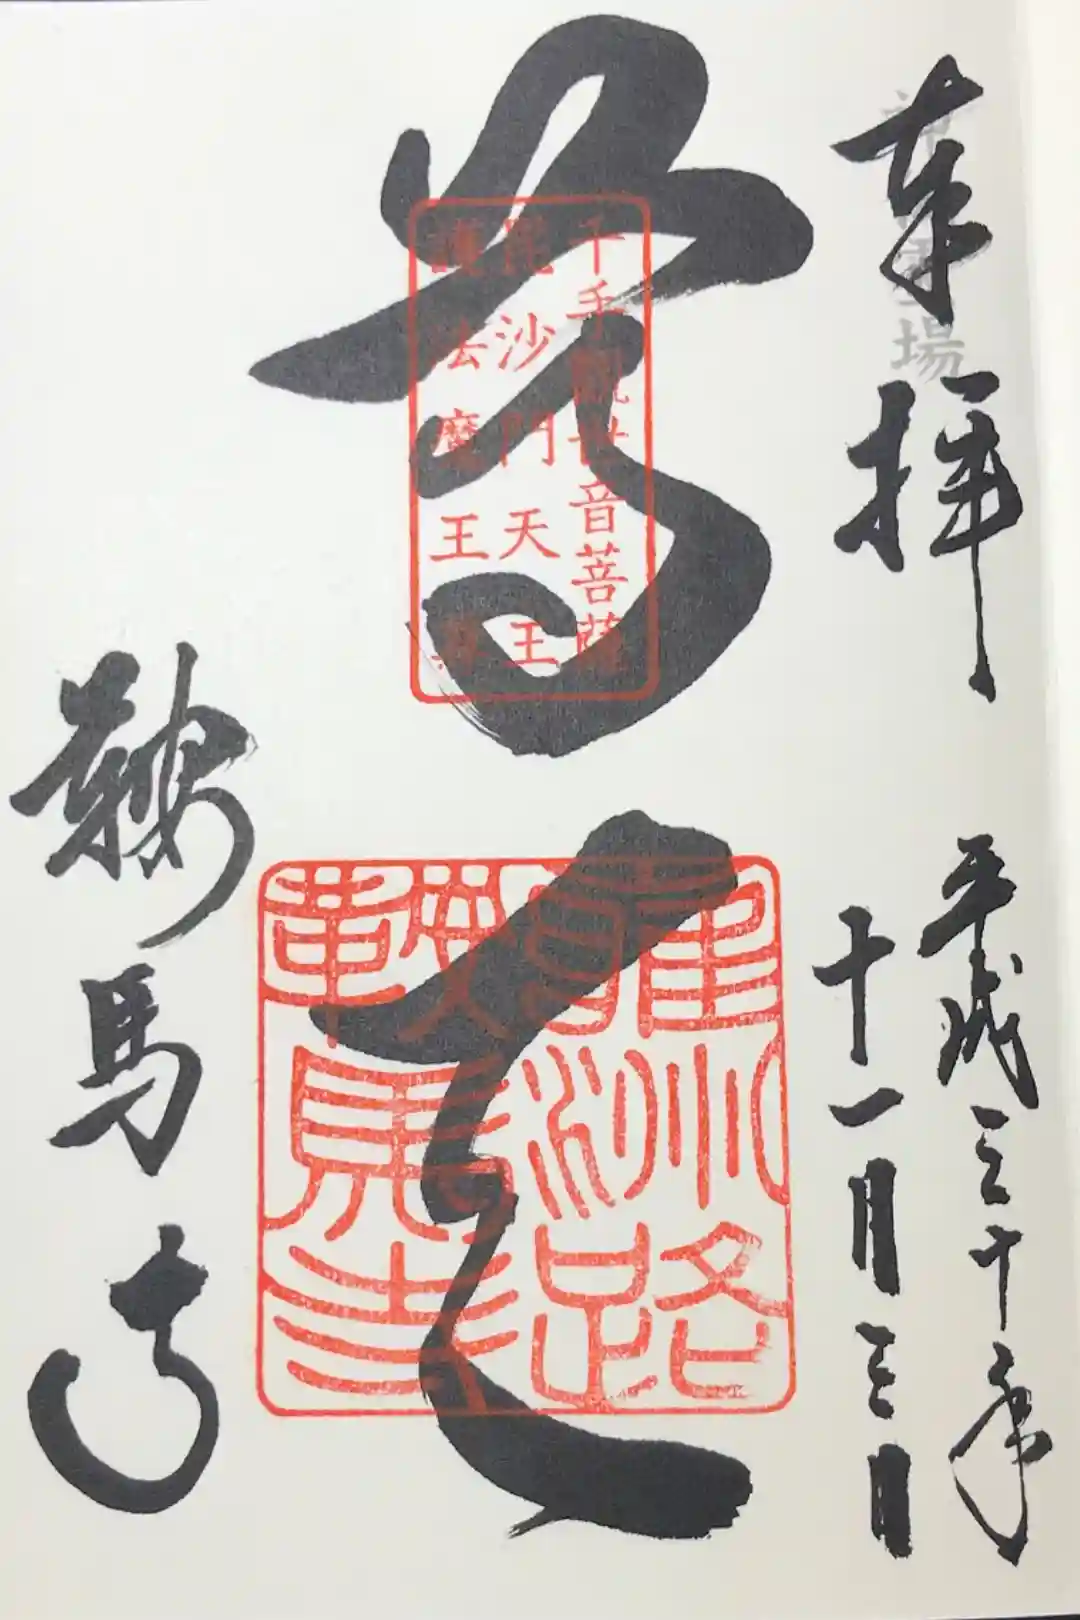 奉拝
平成三十年
十一月三日
尊天
千手觀世音菩薩
毘沙門天王
護法魔王尊
雍州路
鞍馬寺
鞍馬寺